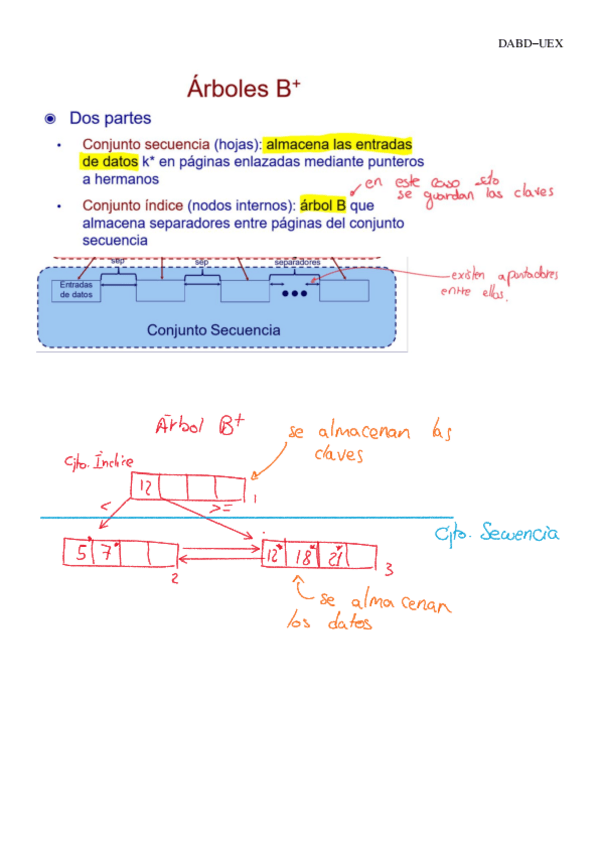 DABD–UEX
Árboles B+
Dos partes
Conjunto secuencia (hojas): almacena las entradas
de datos k* en páginas enlazadas mediante punteros
a hermanos
en este caso solo
se guardan las claves
Conjunto índice (nodos internos): árbol B que
almacena separadores entre páginas del conjunto
secuencia
sep sep separadores
Entradas
de datos
existen apuntadores
entre ellas.
Conjunto Secuencia
Árbol B+
se almacenan las
claves
Cjto. Índice
12
1
< >=
Cjto. Secuencia
5* 7*
2
12* 18* 21*
3
se almacenan
los datos